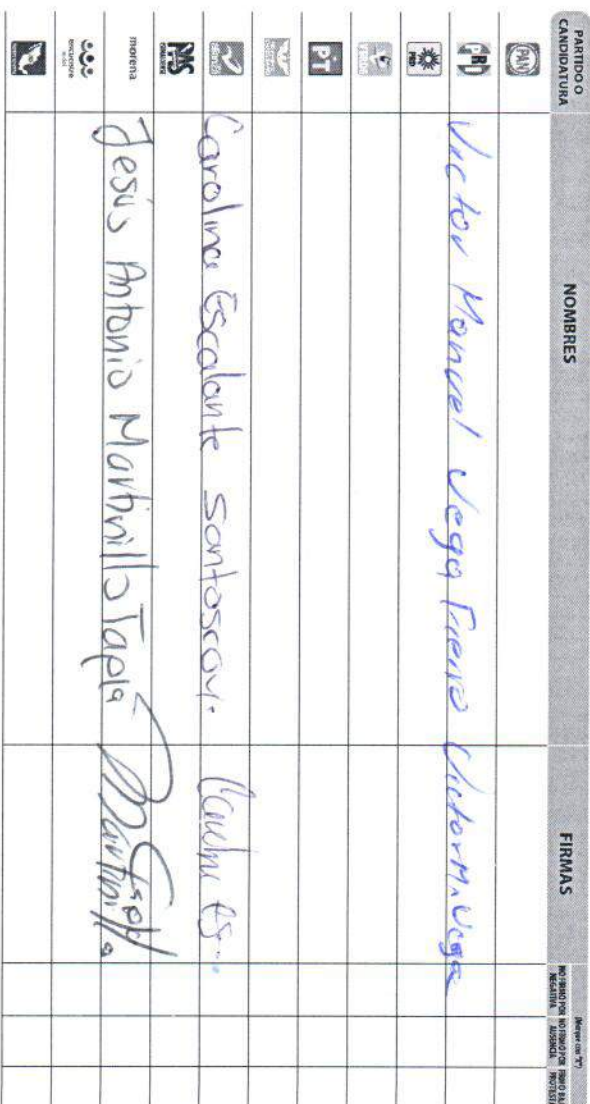 PARTIDO O CANDIDATURA
NOMBRES
FIRMAS
(Marque con "X")
NO FIRMÓ POR NEGATIVA
NO FIRMÓ POR AUSENCIA
FIRMÓ BAJO PROTESTA
PAN
PRI Victor Manuel Vega Fierro Victor M. Vega
PRD
VERDE
PT
mas Carolina Escalante Santoscoy. Carolina Es...
morena Jesús Antonio Martinillo Tapia Martinillo
encuentro